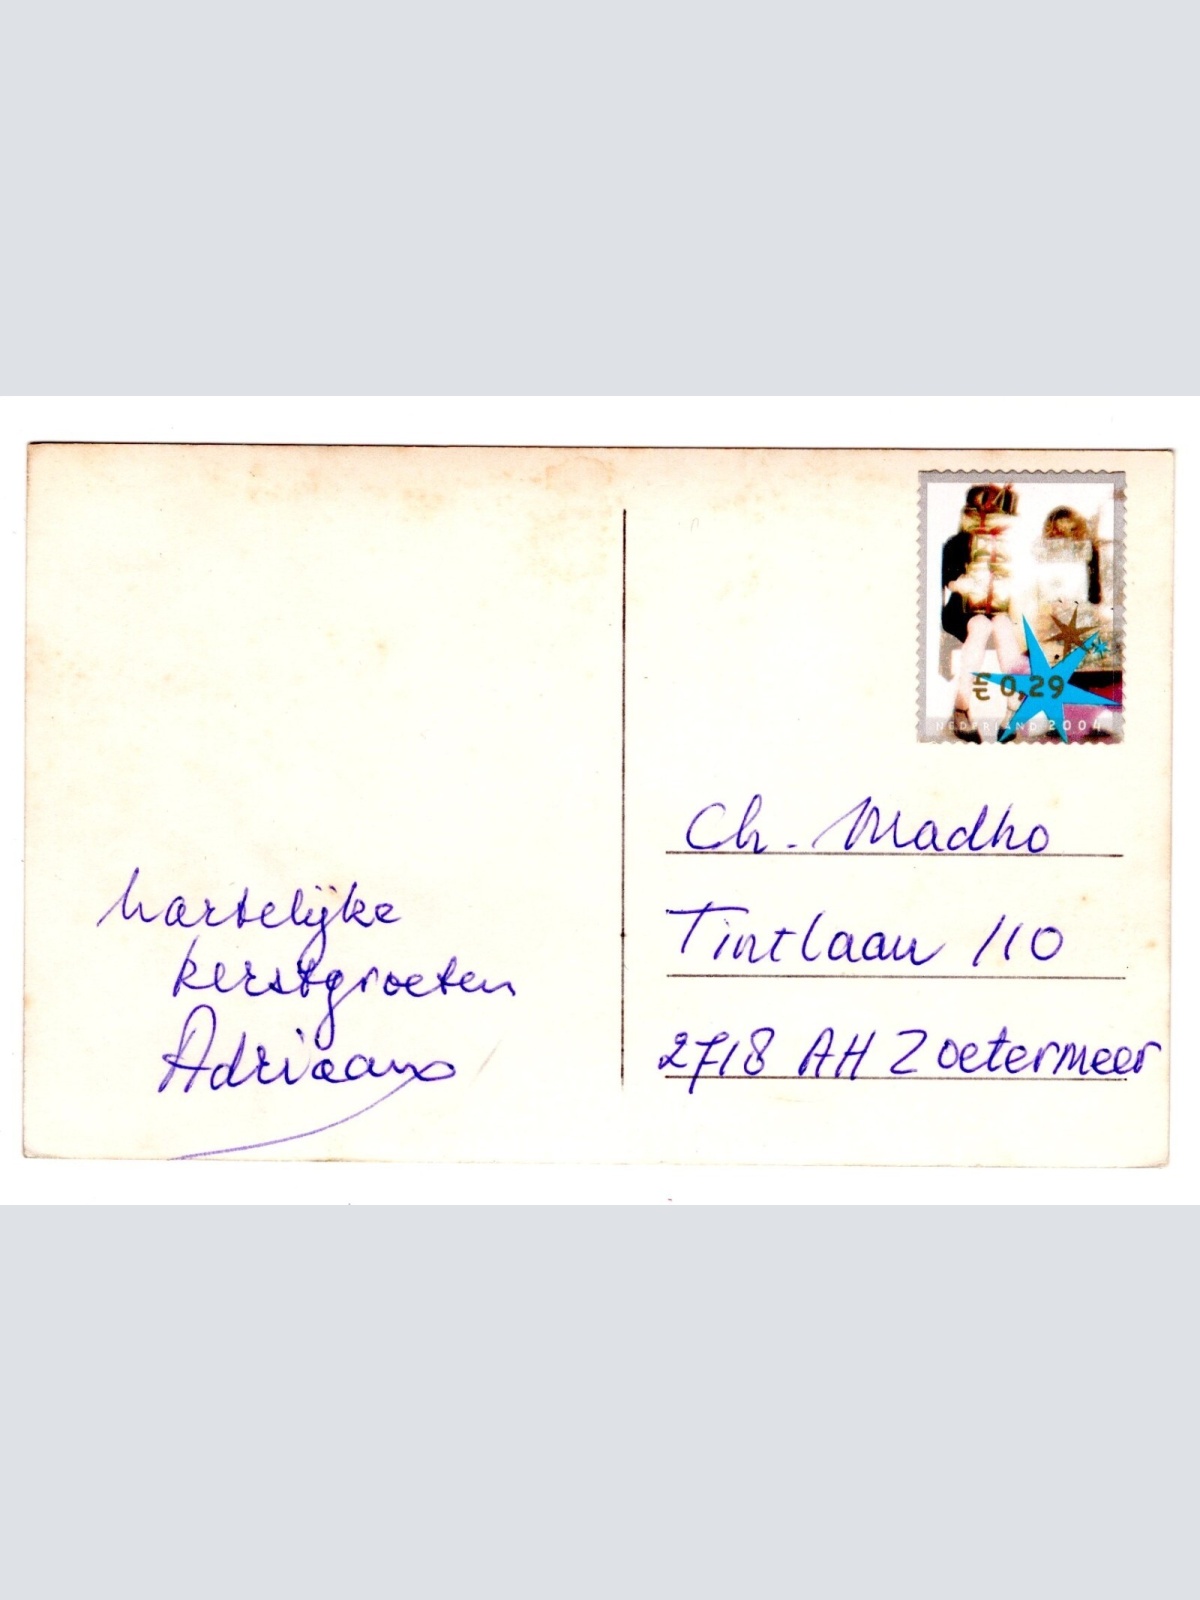 € 0,29
NEDERLAND 2004
Ch. Madho
Tintlaan 110
2718 AH Zoetermeer
hartelijke
kerstgroeten
Adriaans